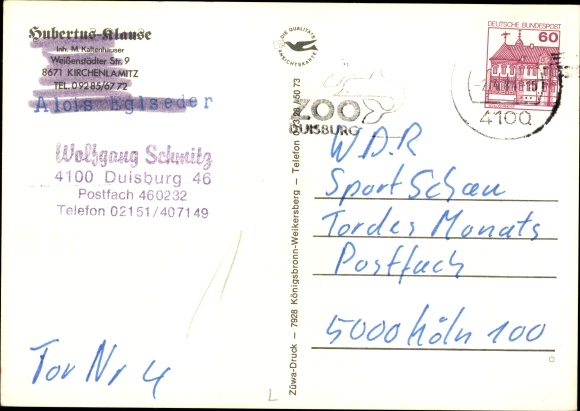 Hubertus-Klause
Inh. M. Kaltenhauser
Weißenstädter Str. 9
8671 KIRCHENLAMITZ
TEL. 09285/6772
Alois Eglseder
Wolfgang Schmitz
4100 Duisburg 46
Postfach 460232
Telefon 02151/407149
Tor Nr 4
DIE QUALITÄTS
ANSICHTSKARTE
Züwa-Druck — 7928 Königsbronn-Weikersberg — Telefon 50 73
ZOO
DUISBURG
4100
DEUTSCHE BUNDESPOST
60
W.D.R
Sport Schau
Tor des Monats
Postfach
5000 Köln 100